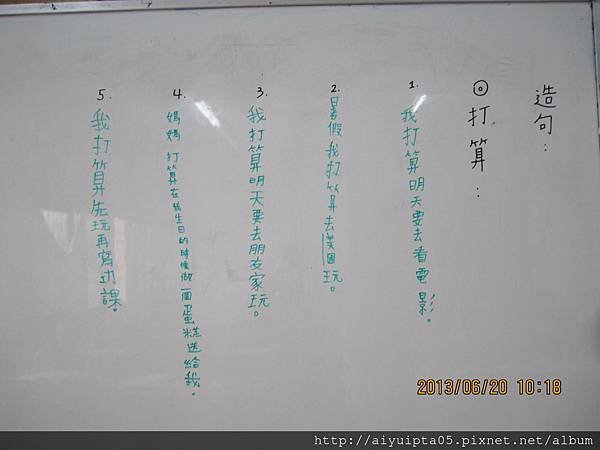 造句：
◎打算：
1.我打算明天要去看電影。
2.暑假我打算去美國玩。
3.我打算明天要去朋友家玩。
4.媽媽打算在我生日的時候做一個蛋糕送給我。
5.我打算先玩再寫功課。
2013/06/20 10:18
http://aiyuipta05.pixnet.net/album